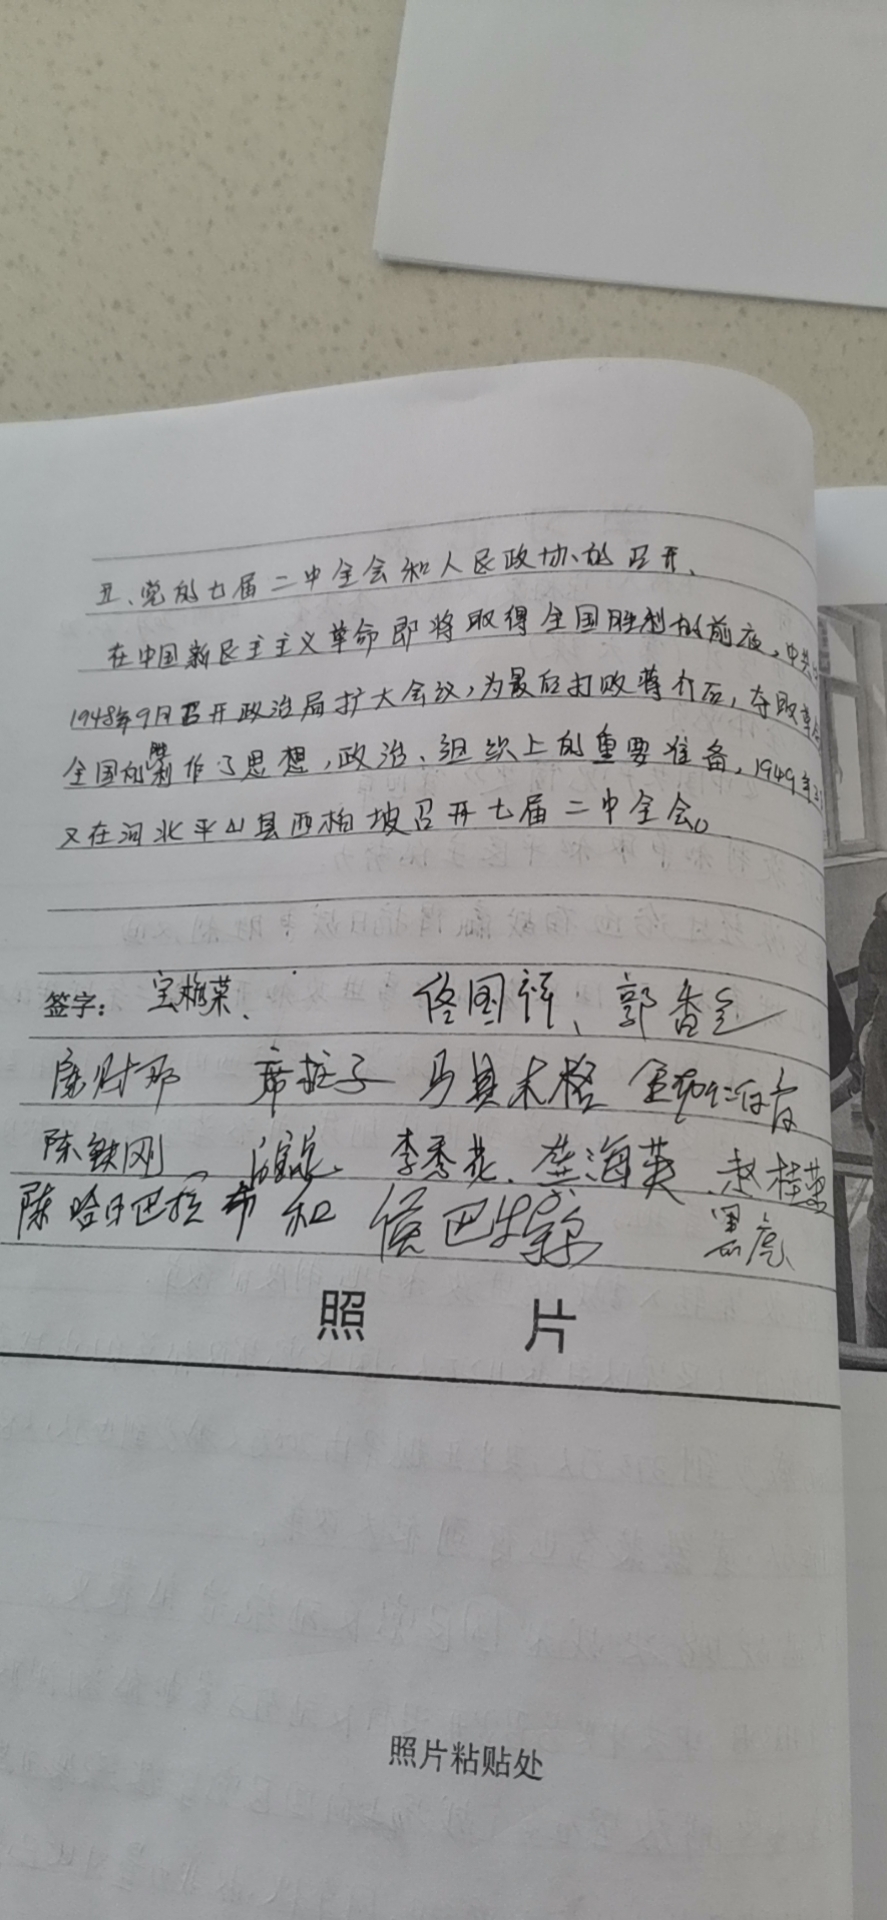 五、党的七届二中全会和人民政协的召开、
在中国新民主主义革命即将取得全国胜利的前夜，中共
1948年9月召开政治局扩大会议，为最后打败蒋介石，夺取革命
全国的胜利作了思想，政治、组织上的重要准备，1949年3
又在河北平山县西柏坡召开七届二中全会。
签字： 宝桂荣、 佟国祥、郭香全
席财那 席拉子 马其木格
陈铁刚、 李秀花、龚海英 赵桂荣
陈哈日巴拉 布和 侯巴特 黑虎
照 片
照片粘贴处